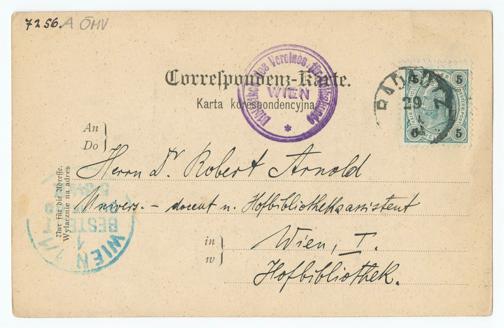 7256.A ÖMV
Correspondenz-Karte.
Karta korespondencyjna.
WIEN
5 5
5 5
29
An
Do
Herrn Dr Robert Arnold
Univers. - docent u. Hofbibliotheksassistent
in
w
Wien, I.
Hofbibliothek.
Nur für die Adresse.
Wyłącznie na adres
WIEN 1/1
BESTELLT
1